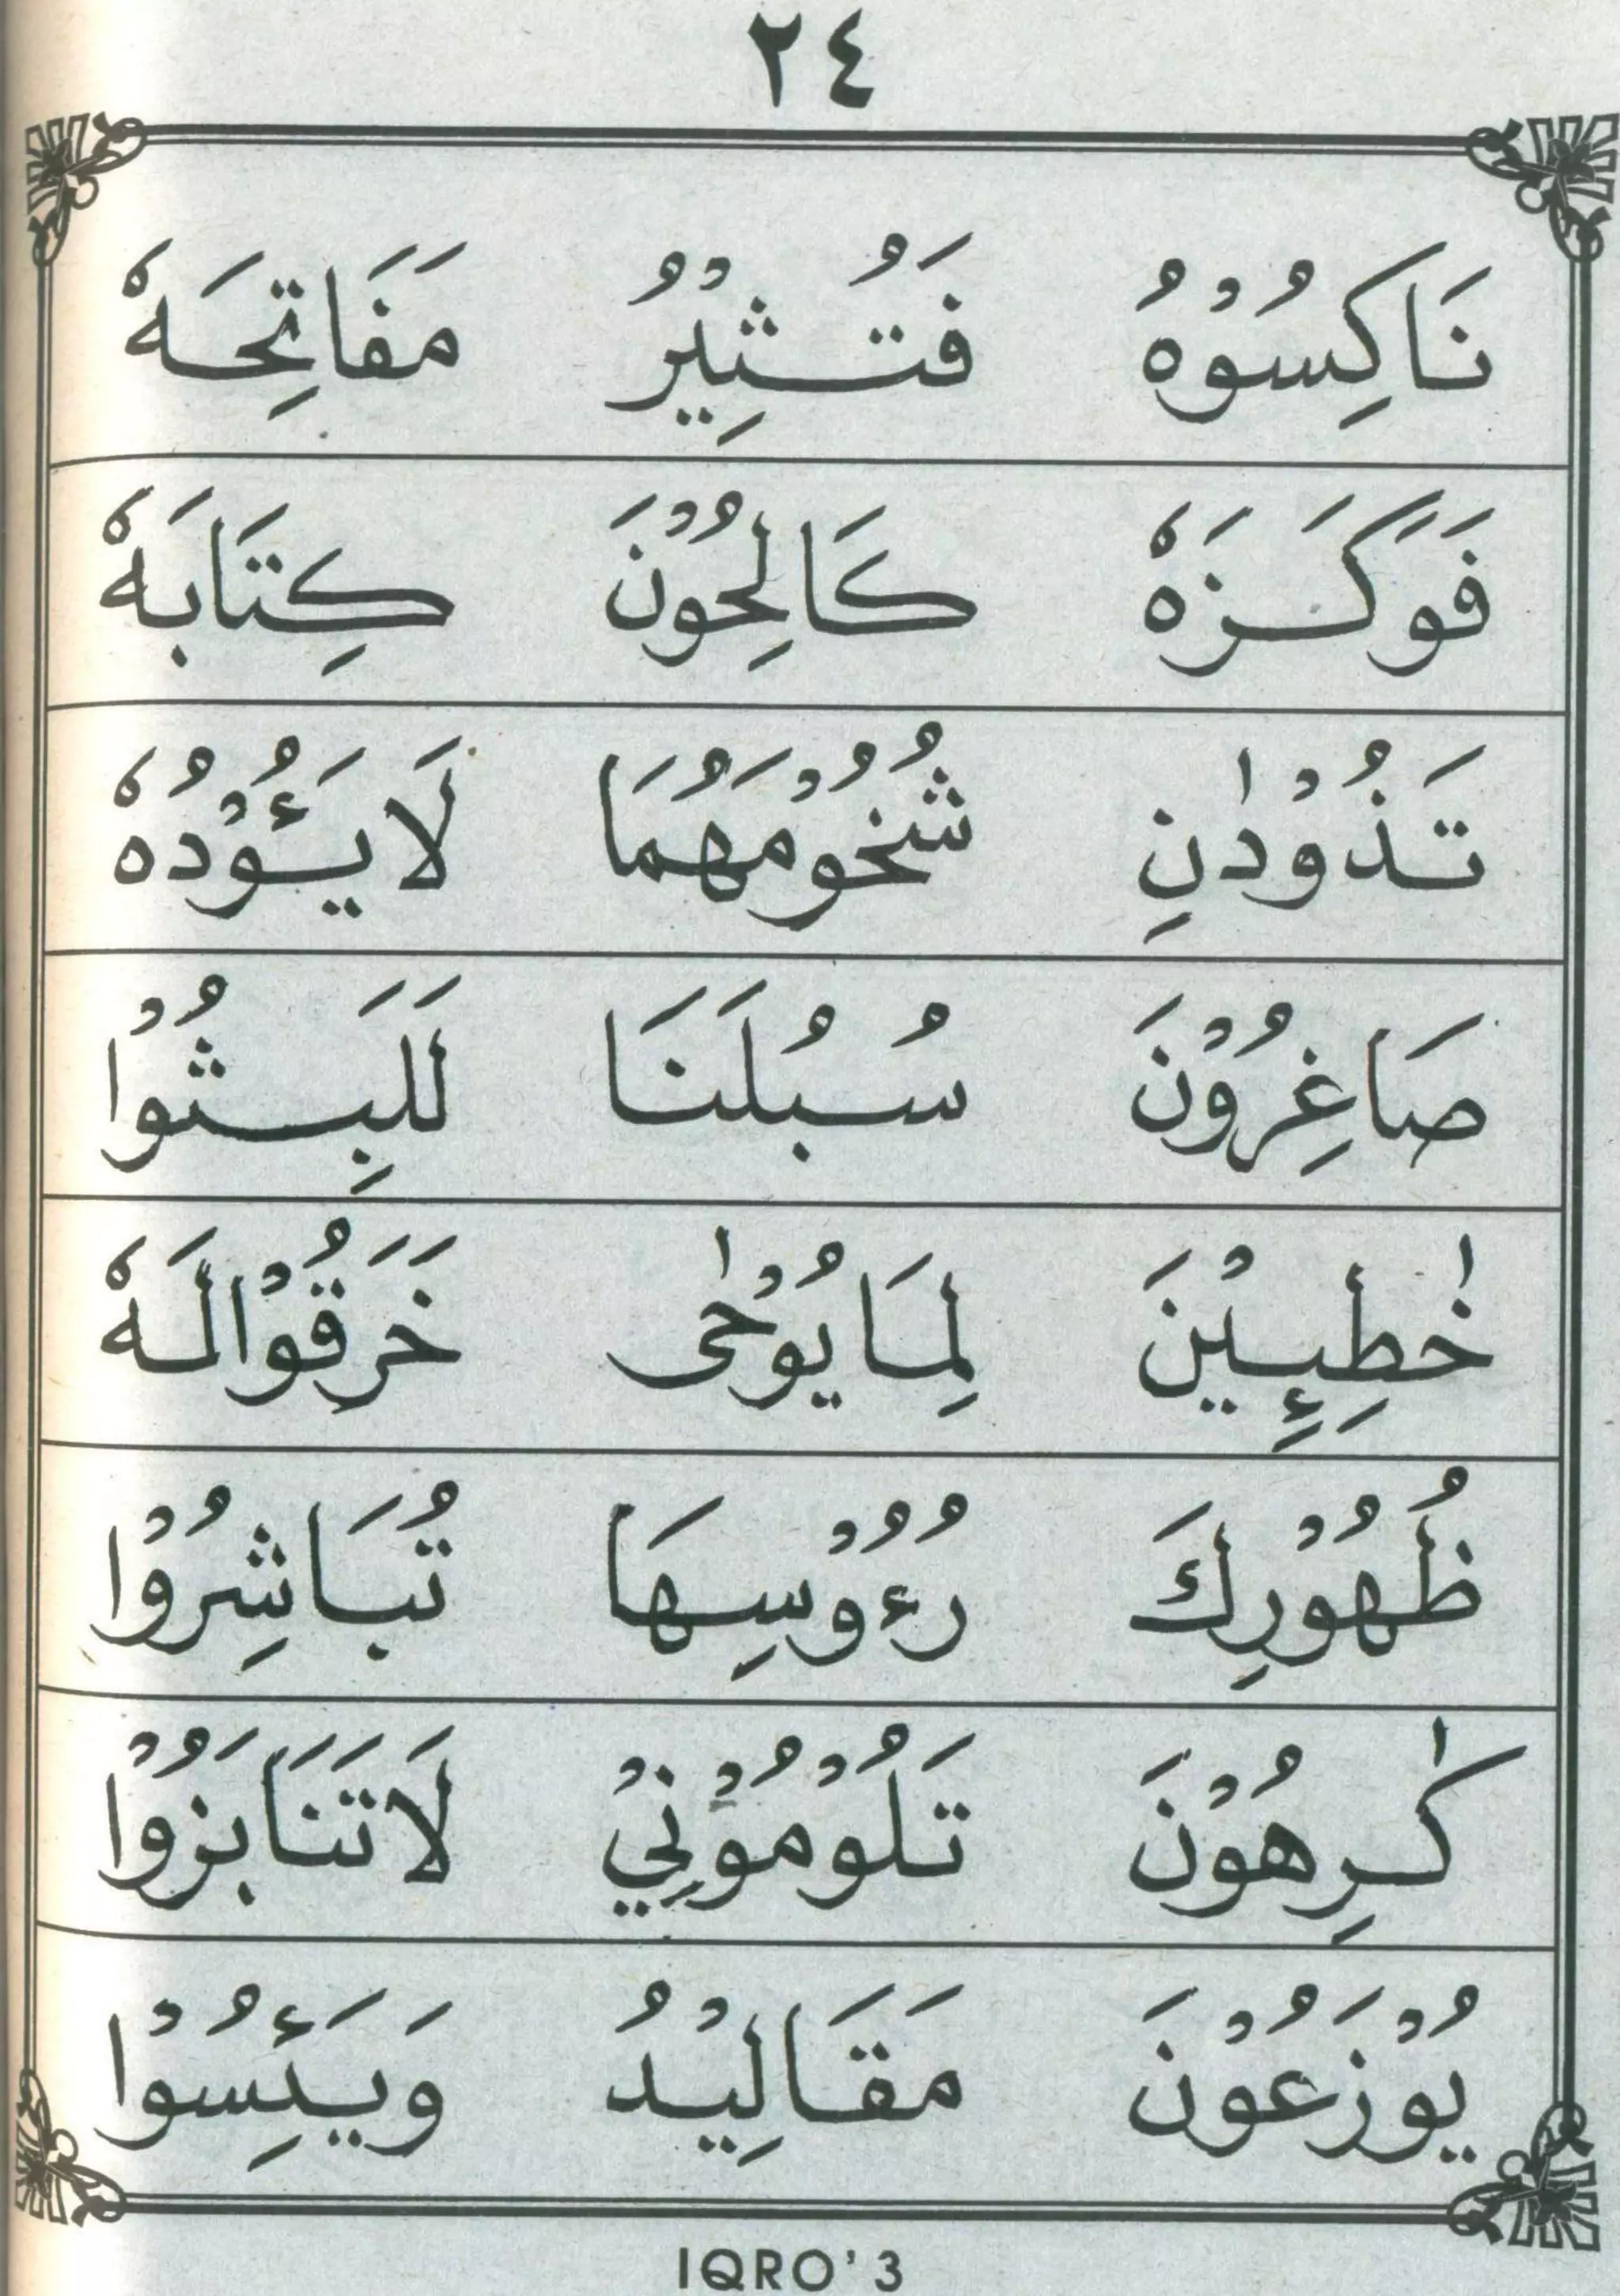 ٢٤
نَاكِسُوْهُ فَتُثِيْرُ مَفَاتِحَهٗ
فَوَكَزَهٗ كَالِحُوْنَ كِتَابَهٗ
تَذُوْدٰنِ شُخُوْمَهُمَا لَايَئُوْدُهٗ
صَاغِرُوْنَ سُبُلَنَا لَلَبِثُوْا
خٰطِـِٕيْنَ لِمَايُوْحٰى خَرَقُوْالَهٗ
ظُهُوْرِكَ رُءُوْسِهَا تُبَاشِرُوْا
كٰرِهُوْنَ تَلُوْمُوْنِيْ لَاتَنَابَزُوْا
يُوْزَعُوْنَ مَقَالِيْدُ وَيَئِسُوْا
IQRO'3